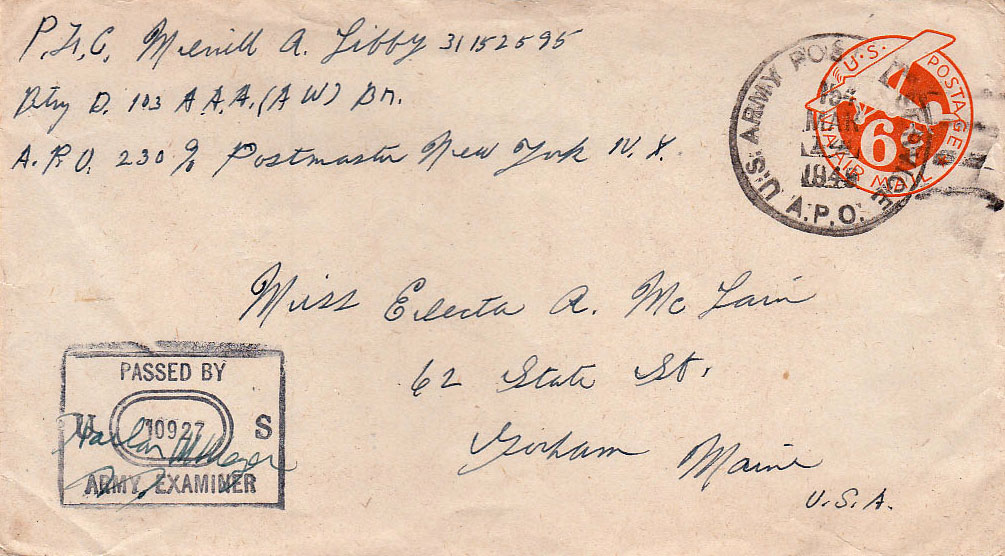 P.F.C. Merrill A. Libby 31152595
Btry D. 103 A.A.A. (A W) Bn.
A.P.O. 230 % Postmaster New York N.Y.
U.S. ARMY POSTAL SERVICE
MAR
A.P.O.
U.S. POSTAGE
6
AIR MAIL
Miss Electa A. Mc Lain
62 State St.
Gorham Maine
U.S.A.
PASSED BY
U 10927 S
ARMY EXAMINER